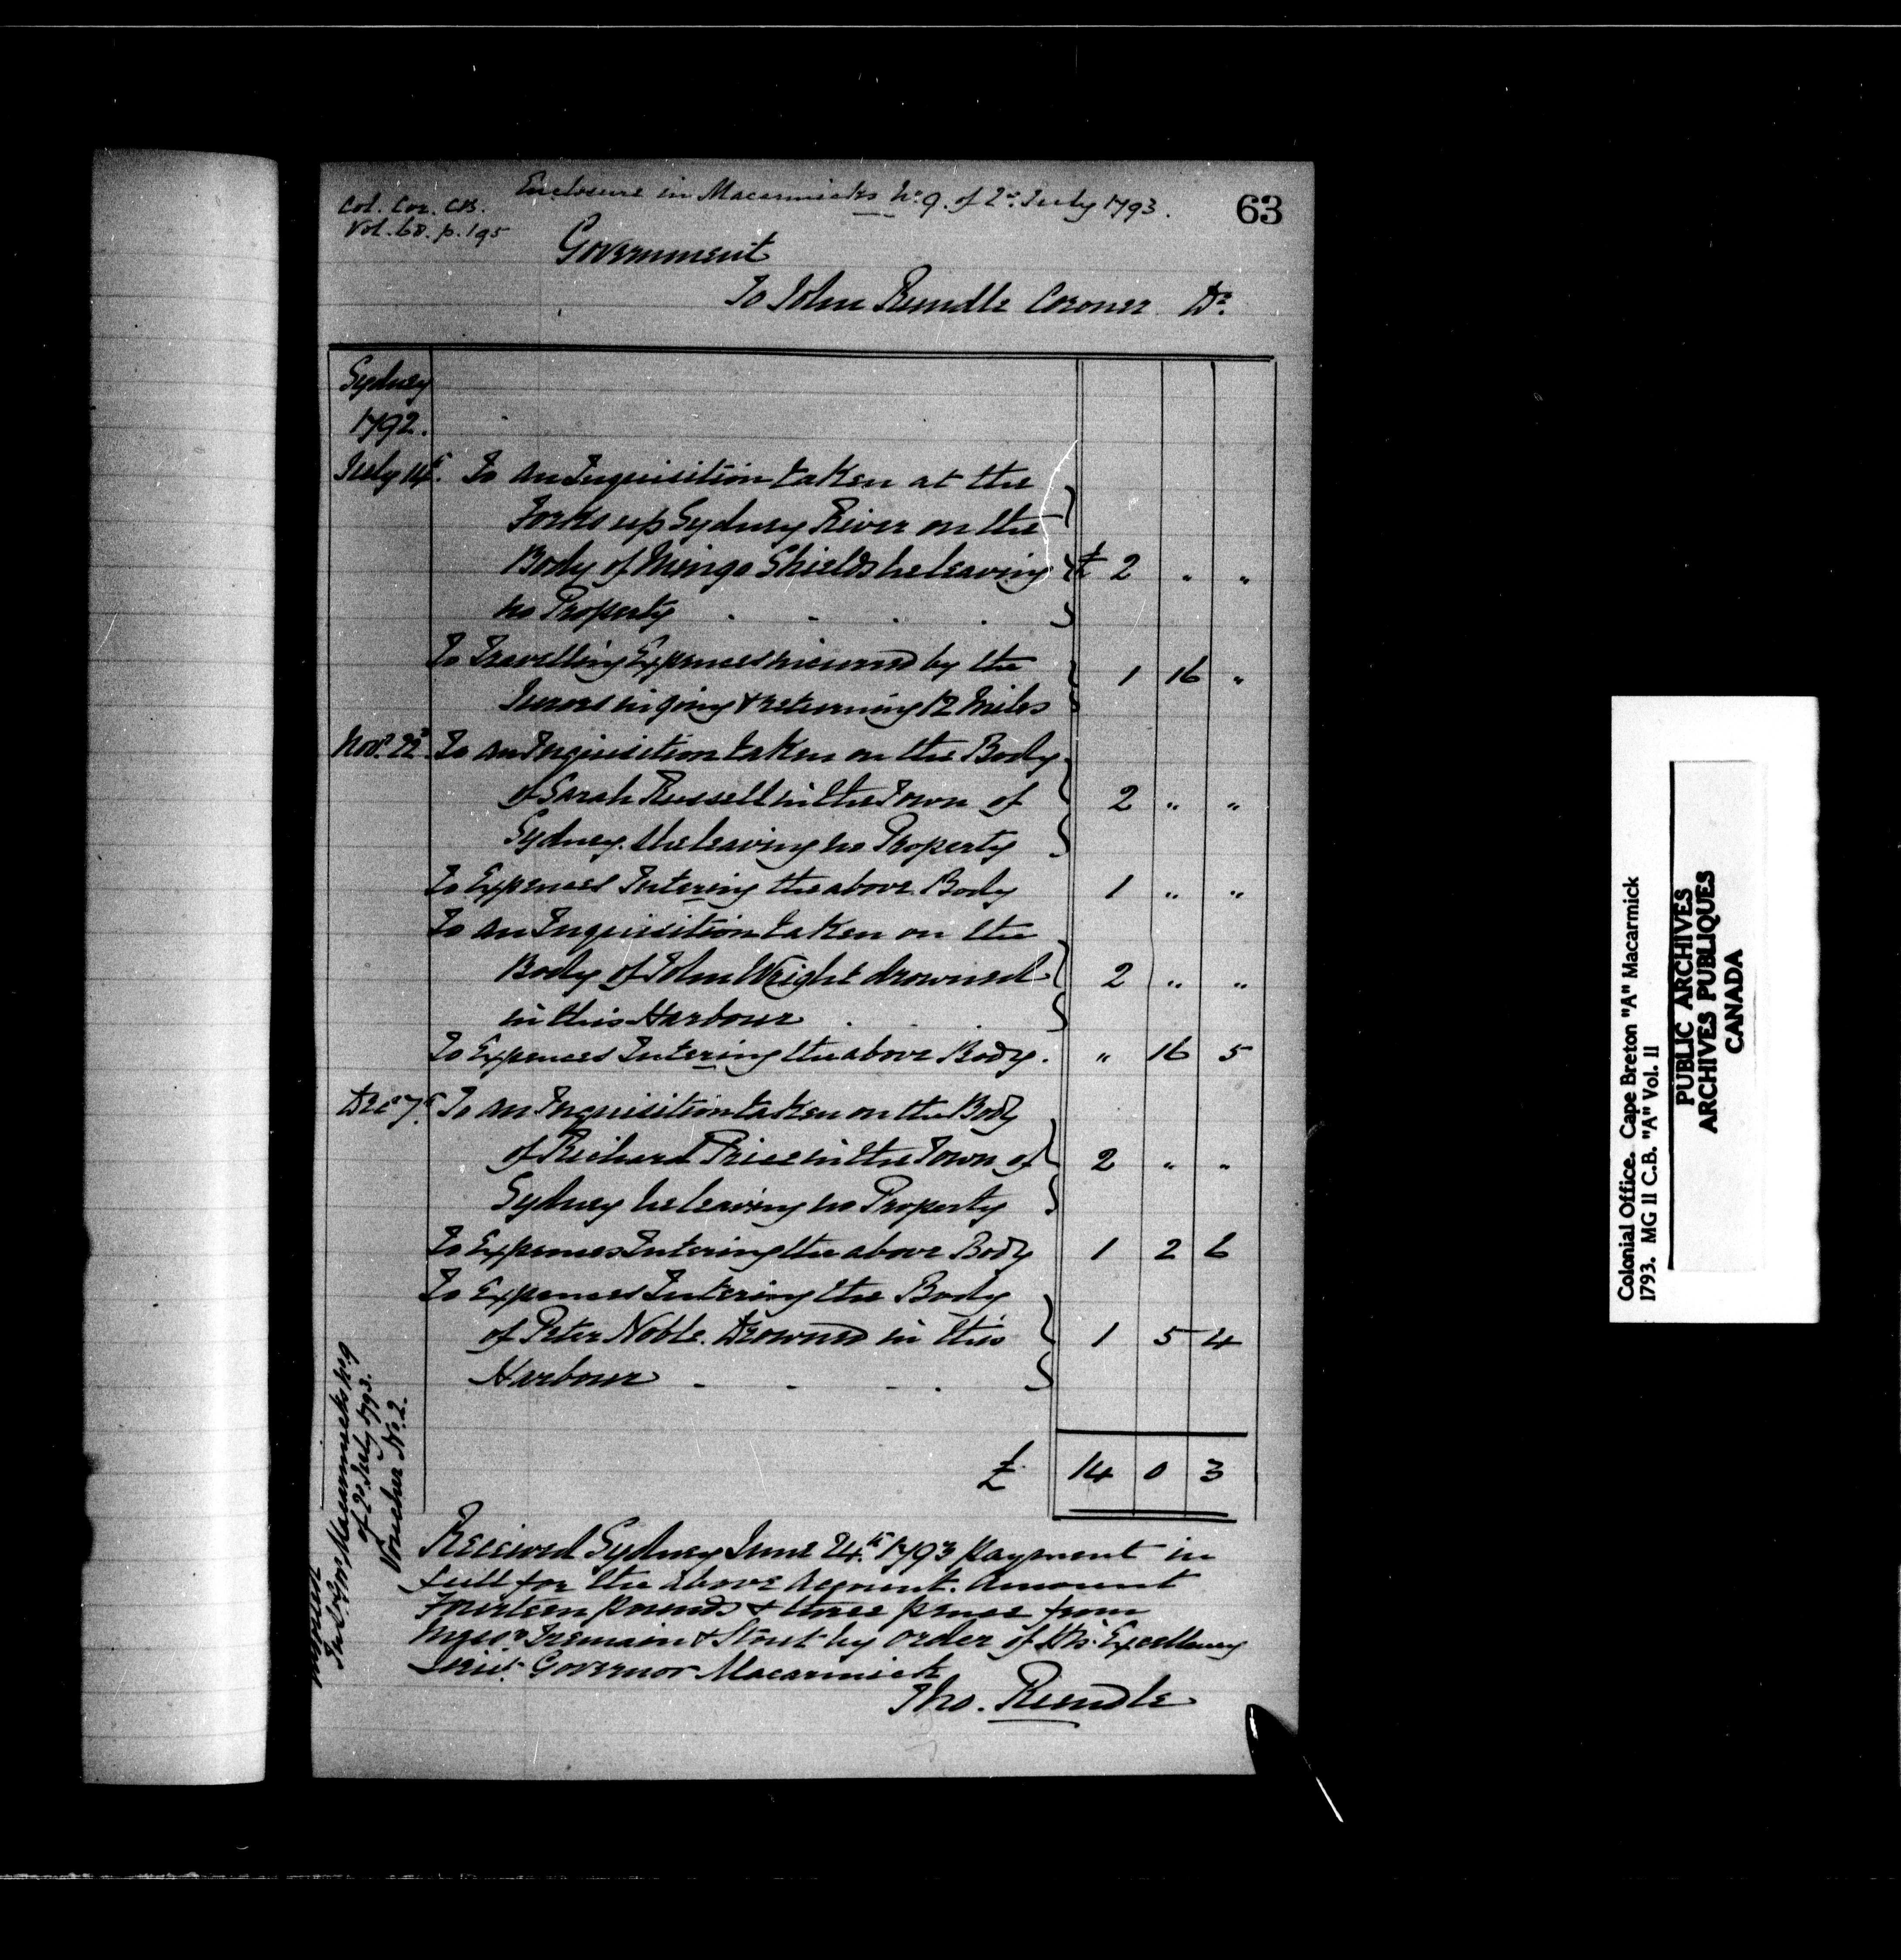 Col. Cor. C.B.
Vol. 68. p. 195
Enclosure in Macarmicks No. 9. of 2d. July 1793.
63
Government
To John Rundle Coroner Dr.
Sydney
1792.
July 14th. To an Inquisition taken at the
Forks up Sydney River on the
Body of Mingo Shields he leaving £ 2 " "
no Property . . . .
To Travelling Expences incurred by the
Jurors in going & returning 12 Miles 1 16 "
Novr. 22d. To an Inquisition taken on the Body
of Sarah Russell in the Town of 2 " "
Sydney. she leaving no Property
To Expences Intering the above Body 1 " "
To an Inquisition taken on the
Body of John Wright drowned 2 " "
in this Harbour . . .
To Expences Intering the above Body. " 16 5
Decr 7th. To an Inquisition taken on the Body
of Richard Price in the Town of 2 " "
Sydney he leaving no Property
To Expences Intering the above Body 1 2 6
To Expences Intering the Body
of Peter Noble. Drowned in this 1 5 4
Harbour - - - -
£ 14 0 3
Received Sydney June 24th. 1793 payment in
full for the above Account. Amount
Fourteen pounds & three pence from
Messrs Tremain & Stout by order of His Excellency
Lieut. Governor Macarmick
Tho. Rundle
In Lt Govr Macarmick's No. 9
of 2d July 1793.
Voucher No. 2.
Colonial Office. Cape Breton "A" Macarmick
1793. MG 11 C.B. "A" Vol. 11
PUBLIC ARCHIVES
ARCHIVES PUBLIQUES
CANADA